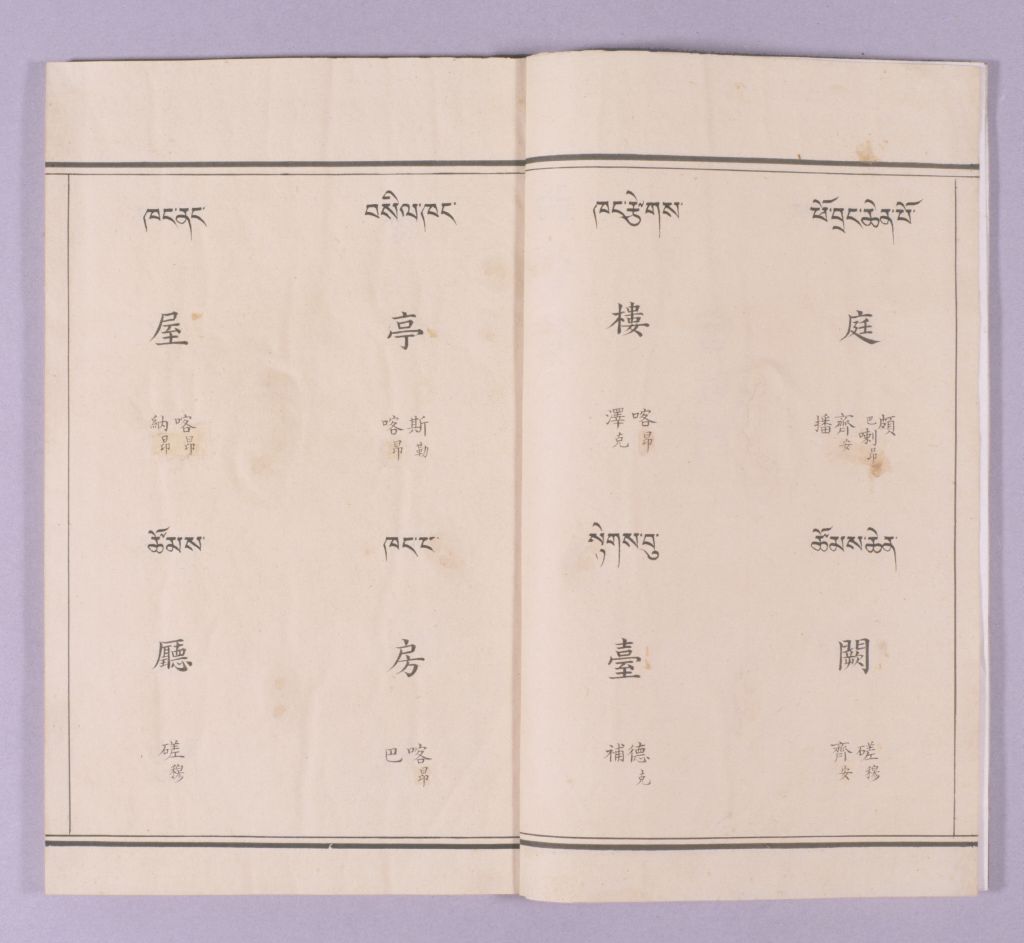 ཕོ་བྲང་ཆེན་པོ་
庭
頗
巴喇昂
齊安
播
ཚོམས་ཆེན་
闕
磋穆
齊安
ཁང་རྩེགས་
樓
喀昂
澤克
སྟེགས་བུ་
臺
德克
補
བསིལ་ཁང་
亭
斯勒
喀昂
ཁང་པ་
房
喀昂
巴
ཁང་ནང་
屋
喀昂
納昂
ཚོམས་
廳
磋穆